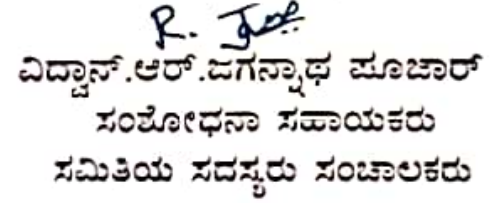 ವಿದ್ವಾನ್.ಆರ್.ಜಗನ್ನಾಥ ಪೂಜಾರ್
ಸಂಶೋಧನಾ ಸಹಾಯಕರು
ಸಮಿತಿಯ ಸದಸ್ಯರು ಸಂಚಾಲಕರು